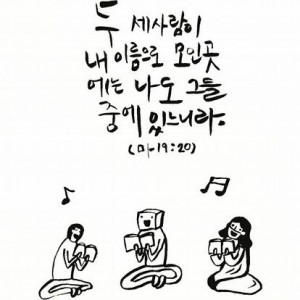 두 세사람이
내 이름으로 모인곳
에는 나도 그들
중에 있느니라.
(마-19:20)